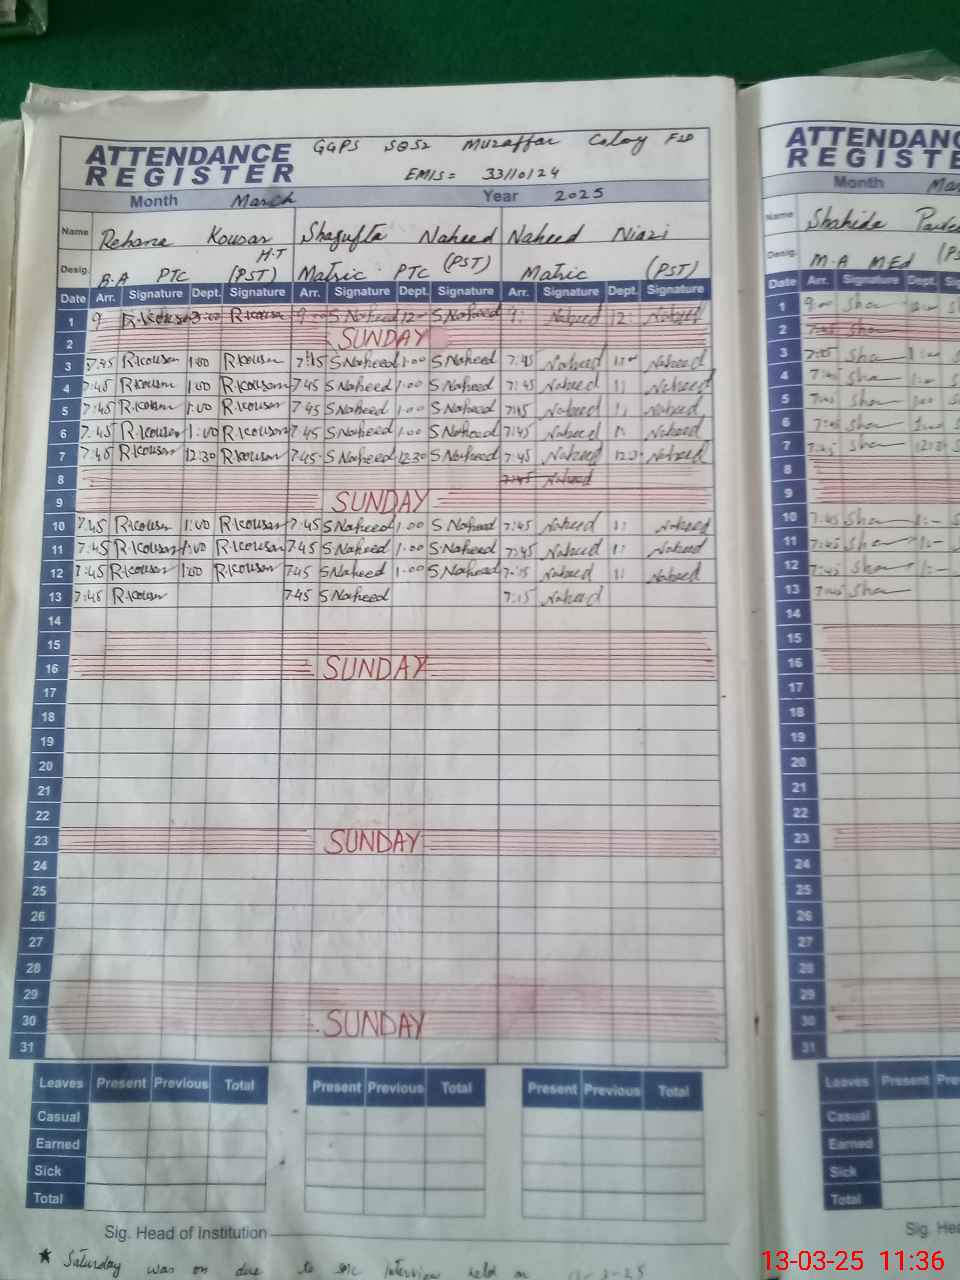 ATTENDANCE REGISTER
GGPS
Muzaffar Colony FSD
EMIS = 33110124
Month March Year 2025
Name Rehana Kousar Shagufta Naheed Naheed Niazi
H.T
Desig. B.A PTC (PST) Matric PTC (PST) Matric (PST)
Date Arr. Signature Dept. Signature Arr. Signature Dept. Signature Arr. Signature Dept. Signature
1 9 R.Kousar R.Kousar 9:00 S Naheed 12 S Naheed 9: Naheed 12: Naheed
2 SUNDAY
3 7:45 R.Kousar 1:00 R.Kousar 7:45 S Naheed 1:00 S Naheed 7:45 Naheed Naheed
4 7:45 R.Kousar 1:00 R.Kousar 7 45 S Naheed 1:00 S Naheed 7:45 Naheed 1: Naheed
5 7:45 R.Kousar 1:00 R.Kousar 7 45 S Naheed 1:00 S Naheed 7:45 Naheed 1: Naheed
6 7:45 R.Kousar 1:00 R.Kousar 7 45 S Naheed 1:00 S Naheed 7:45 Naheed 1: Naheed
7 7:45 R.Kousar 12:30 R.Kousar 7:45 S Naheed 12:30 S Naheed 7:45 Naheed 12:3 Naheed
8 7:45 Naheed
9 SUNDAY
10 7:45 R.Kousar 1:00 R.Kousar 7:45 S Naheed 1:00 S Naheed 7:45 Naheed 1: Naheed
11 7:45 R.Kousar 1:00 R.Kousar 7 45 S Naheed 1:00 S Naheed 7:45 Naheed 1: Naheed
12 7:45 R.Kousar 1:00 R.Kousar 7 45 S Naheed 1:00 S Naheed Naheed 1: Naheed
13 7:45 R.Kousar 7 45 S Naheed 7:15 Naheed
14
15
16 SUNDAY
17
18
19
20
21
22
23 SUNDAY
24
25
26
27
28
29
30 SUNDAY
31
Leaves Present Previous Total Present Previous Total Present Previous Total
Casual
Earned
Sick
Total
Sig. Head of Institution
★ Saturday was on due to Interview held on
ATTENDANCE
REGISTE
Month Mar
Name Shahida
Desig. M.A MEd (PS
Date Arr. Signature Dept. Sig
1 9:00 Sha
2
3 Sha
4 Sha
5 Sha
6 Sha
7 Sha
8
9
10 7:45 Sha 1:-
11 7:45 Sha 1:-
12 7:45 Sha 1:-
13 7:45 Sha
14
15
16
17
18
19
20
21
22
23
24
25
26
27
28
29
30
31
Leaves Present Pre
Casual
Earned
Sick
Total
Sig. He
13-03-25 11:36